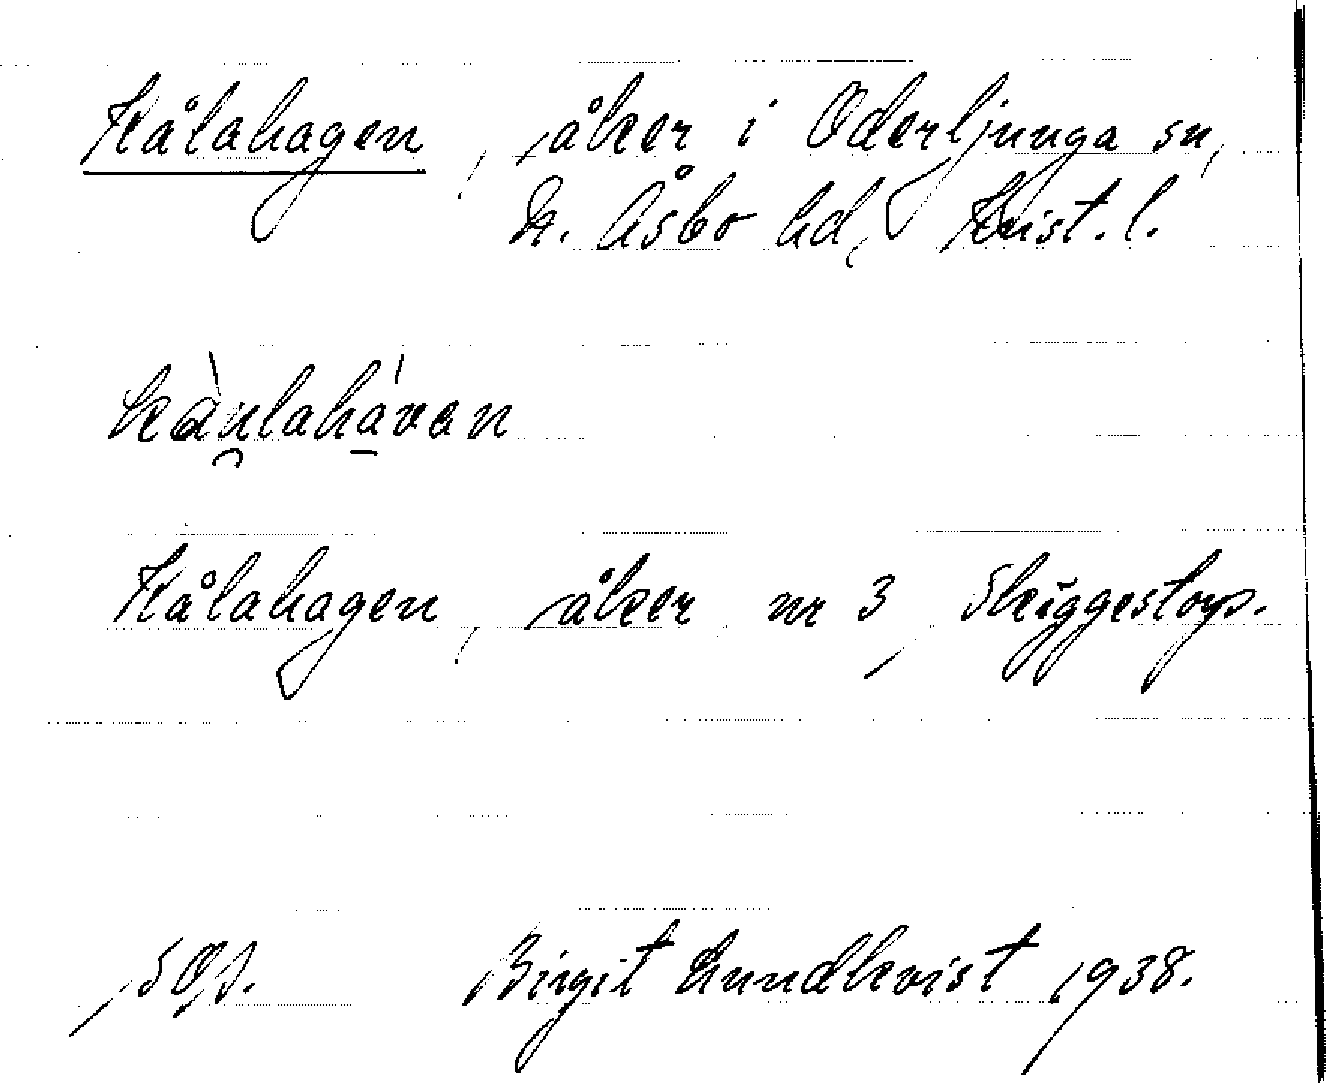 Kålahagen, åker i Oderljunga sn,
N. Åsbo hd, Krist. l.
Kålahagen, åker nr 3, Skäggestorp.
Birgit Lundkvist 1938.